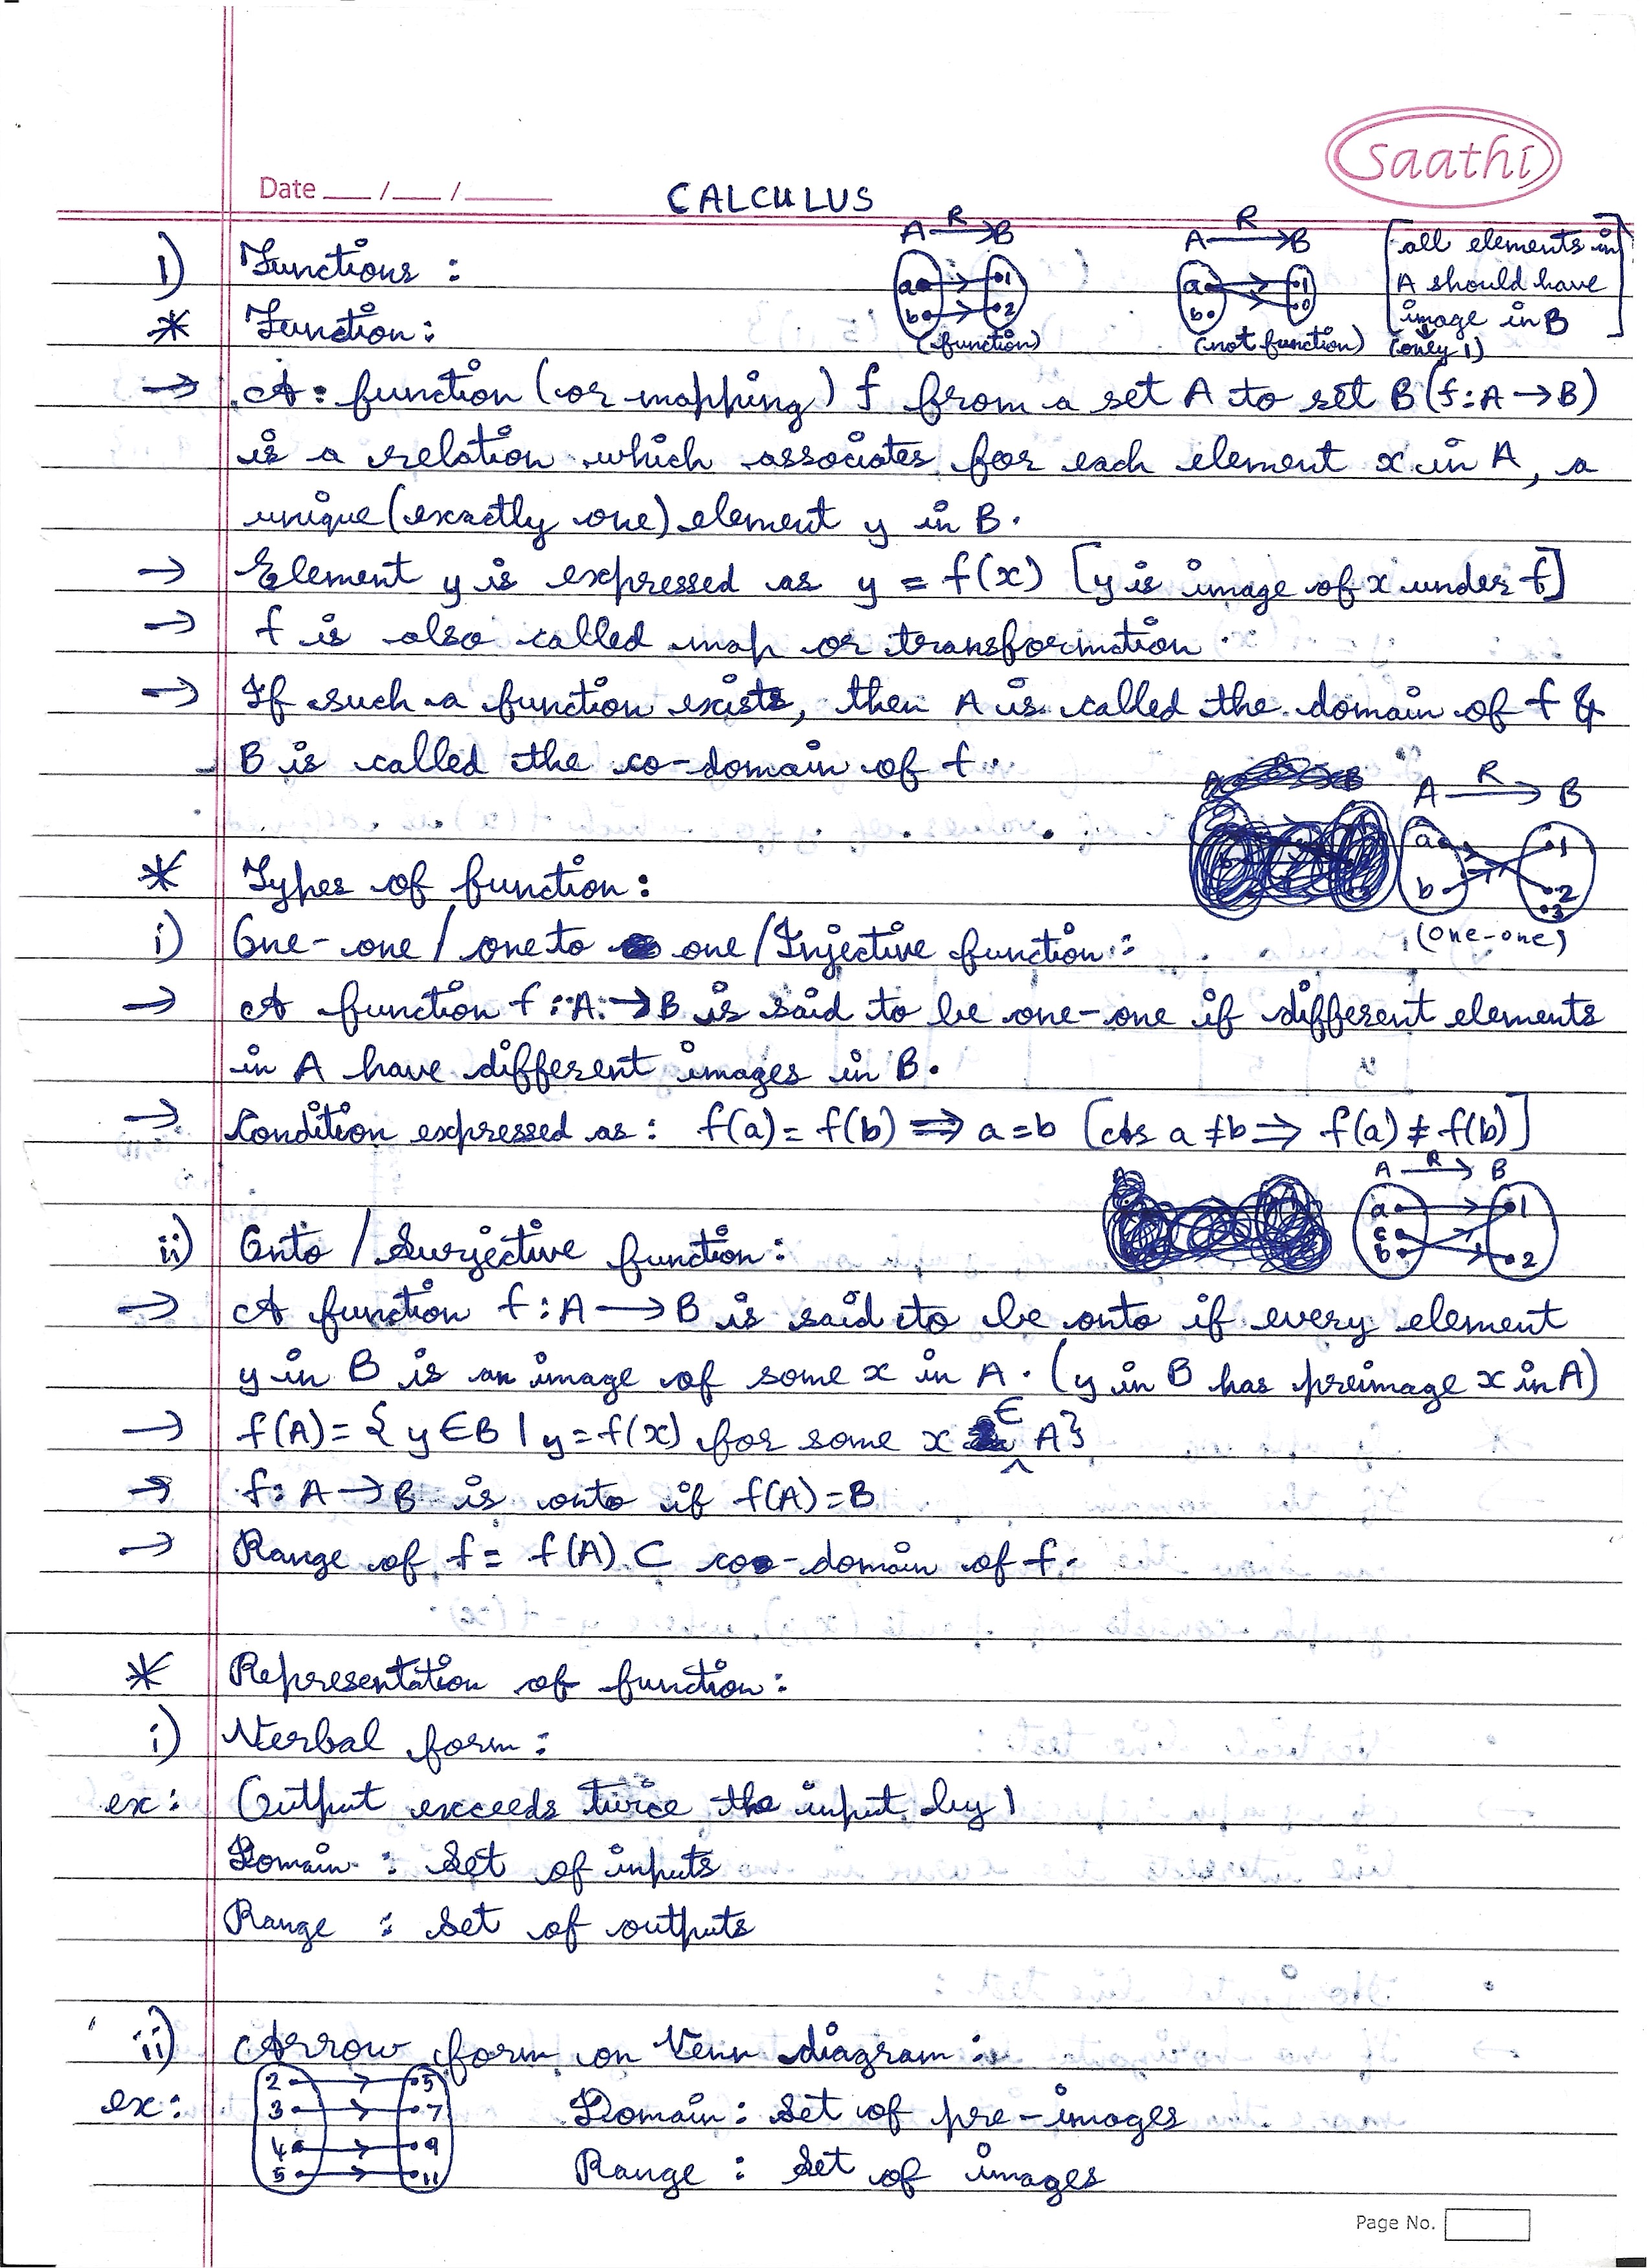 saathi
Date ___/___/_____
CALCULUS
A R→ B
A R→ B
[all elements in
A should have
image in B]
(only 1)
a 1
b 2
(function)
a 1
b 0
(not function)
1) Functions :
* Function :
→ A function (or mapping) f from a set A to set B (f : A → B)
is a relation which associates for each element x in A, a
unique (exactly one) element y in B.
→ Element y is expressed as y = f(x) [y is image of x under f]
→ f is also called map or transformation.
→ If such a function exists, then A is called the domain of f &
B is called the co-domain of f.
A R→ B
a 1
b 2
3
(one-one)
* Types of function :
i) One-one / one to one / Injective function :
→ A function f : A → B is said to be one-one if different elements
in A have different images in B.
→ Condition expressed as : f(a) = f(b) ⇒ a = b [as a ≠ b ⇒ f(a) ≠ f(b)]
A R→ B
a 1
c
b 2
ii) Onto / Surjective function :
→ A function f : A → B is said to be onto if every element
y in B is an image of some x in A. (y in B has preimage x in A)
→ f(A) = { y ∈ B | y = f(x) for some x ∈ A}
→ f : A → B is onto if f(A) = B
→ Range of f = f(A) ⊂ co-domain of f.
* Representation of function :
i) Verbal form :
ex : Output exceeds twice the input by 1
Domain : Set of inputs
Range : Set of outputs
ii) Arrow form on Venn diagram :
ex : 2 → 5
3 → 7
4 → 9
5 → 11
Domain : Set of pre-images
Range : Set of images
Page No.